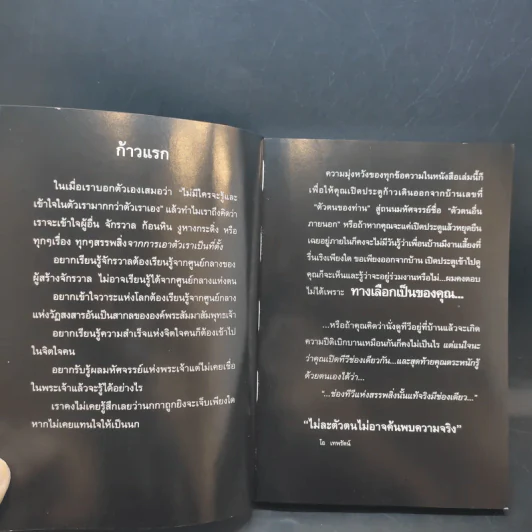 ก้าวแรก
ในเมื่อเราบอกตัวเองเสมอว่า "ไม่มีใครจะรู้และ
เข้าใจในตัวเรามากกว่าตัวเราเอง" แล้วทำไมเราถึงคิดว่า
เราจะเข้าใจผู้อื่น จักรวาล ก้อนหิน งูหางกระดิ่ง หรือ
ทุกๆเรื่อง ทุกๆสรรพสิ่งจากการเอาตัวเราเป็นที่ตั้ง
อยากเรียนรู้จักรวาลต้องเรียนรู้จากศูนย์กลางของ
ผู้สร้างจักรวาล ไม่อาจเรียนรู้ได้จากศูนย์กลางแห่งตน
อยากเข้าใจวาระแห่งโลกต้องเรียนรู้จากศูนย์กลาง
แห่งวัฏสงสารอันเป็นสากลขององค์พระสัมมาสัมพุทธเจ้า
อยากเรียนรู้ความสำเร็จแห่งจิตใจคนก็ต้องเข้าไป
ในจิตใจคน
อยากรับรู้ผลมหัศจรรย์แห่งพระเจ้าแต่ไม่เคยเชื่อ
ในพระเจ้าแล้วจะรู้ได้อย่างไร
เราคงไม่เคยรู้สึกเลยว่านกกาถูกยิงจะเจ็บเพียงใด
หากไม่เคยแทนใจให้เป็นนก
ความมุ่งหวังของทุกข้อความในหนังสือเล่มนี้ก็
เพื่อให้คุณเปิดประตูก้าวเดินออกจากบ้านเลขที่
"ตัวตนของท่าน" สู่ถนนมหัศจรรย์ชื่อ "ตัวตนอื่น
ภายนอก" หรือถ้าหากคุณจะแค่เปิดประตูแล้วหยุดยืน
เฉยอยู่ภายในก็คงจะไม่มีวันรู้ว่าเพื่อนบ้านมีงานเลี้ยงที่
รื่นเริงเพียงใด ขอเพียงออกจากบ้าน เปิดประตูเข้าไปดู
คุณก็จะเห็นและรู้ว่าจะอยู่ร่วมงานหรือไม่...ผมคงตอบ
ไม่ได้เพราะ ทางเลือกเป็นของคุณ...
...หรือถ้าคุณคิดว่านั่งดูทีวีอยู่ที่บ้านแล้วจะเกิด
ความปิติเบิกบานเหมือนกันก็คงไม่เป็นไร แต่แน่ใจนะ
ว่าคุณเปิดทีวีช่องเดียวกัน...และสุดท้ายคุณตระหนักรู้
ด้วยตนเองได้ว่า...
"...ช่องทีวีแห่งสรรพสิ่งนั้นแท้จริงมีช่องเดียว..."
"ไม่ละตัวตนไม่อาจค้นพบความจริง"
โอ เทพรัตน์